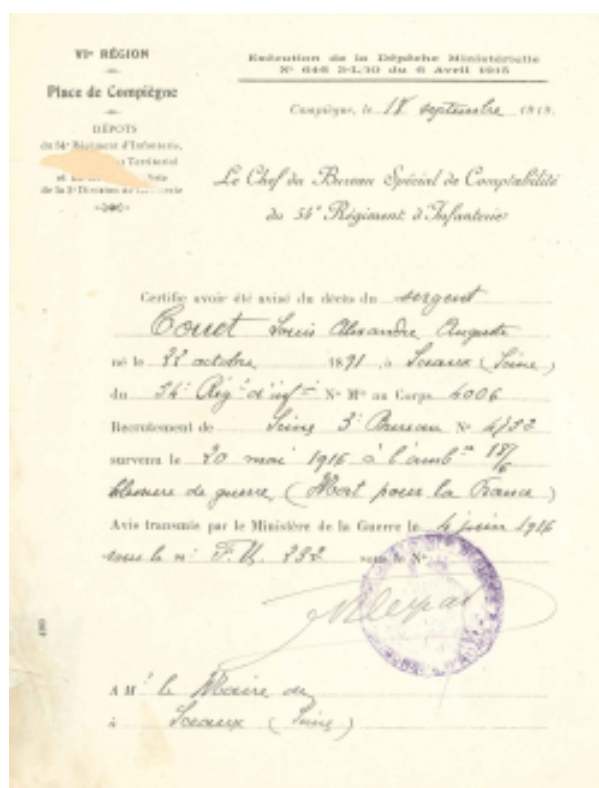 VIe RÉGION
Place de Compiègne
DÉPOTS
du 54e Régiment d'Infanterie,
Territorial
et
de la 3e Division de
Exécution de la Dépêche Ministérielle
No 646 3-L/10 du 6 Avril 1915
Compiègne, le 18 septembre 1919.
Le Chef du Bureau Spécial de Comptabilité
du 54e Régiment d'Infanterie
Certifie avoir été avisé du décès du sergent
Couet Louis Alexandre Auguste
né le 22 octobre 1891, à Sceaux (Seine)
du 54e Rég.t d'inf.ie No Mle au Corps 4006
Recrutement de Seine 3e Bureau No 4732
survenu le 20 mai 1916 à l'amb.ce 18/6
blessure de guerre (Mort pour la France)
Avis transmis par le Ministère de la Guerre le 4 juin 1916
sous le no F.U. 232 sous le No
A Mr le Maire de
à Sceaux (Seine)